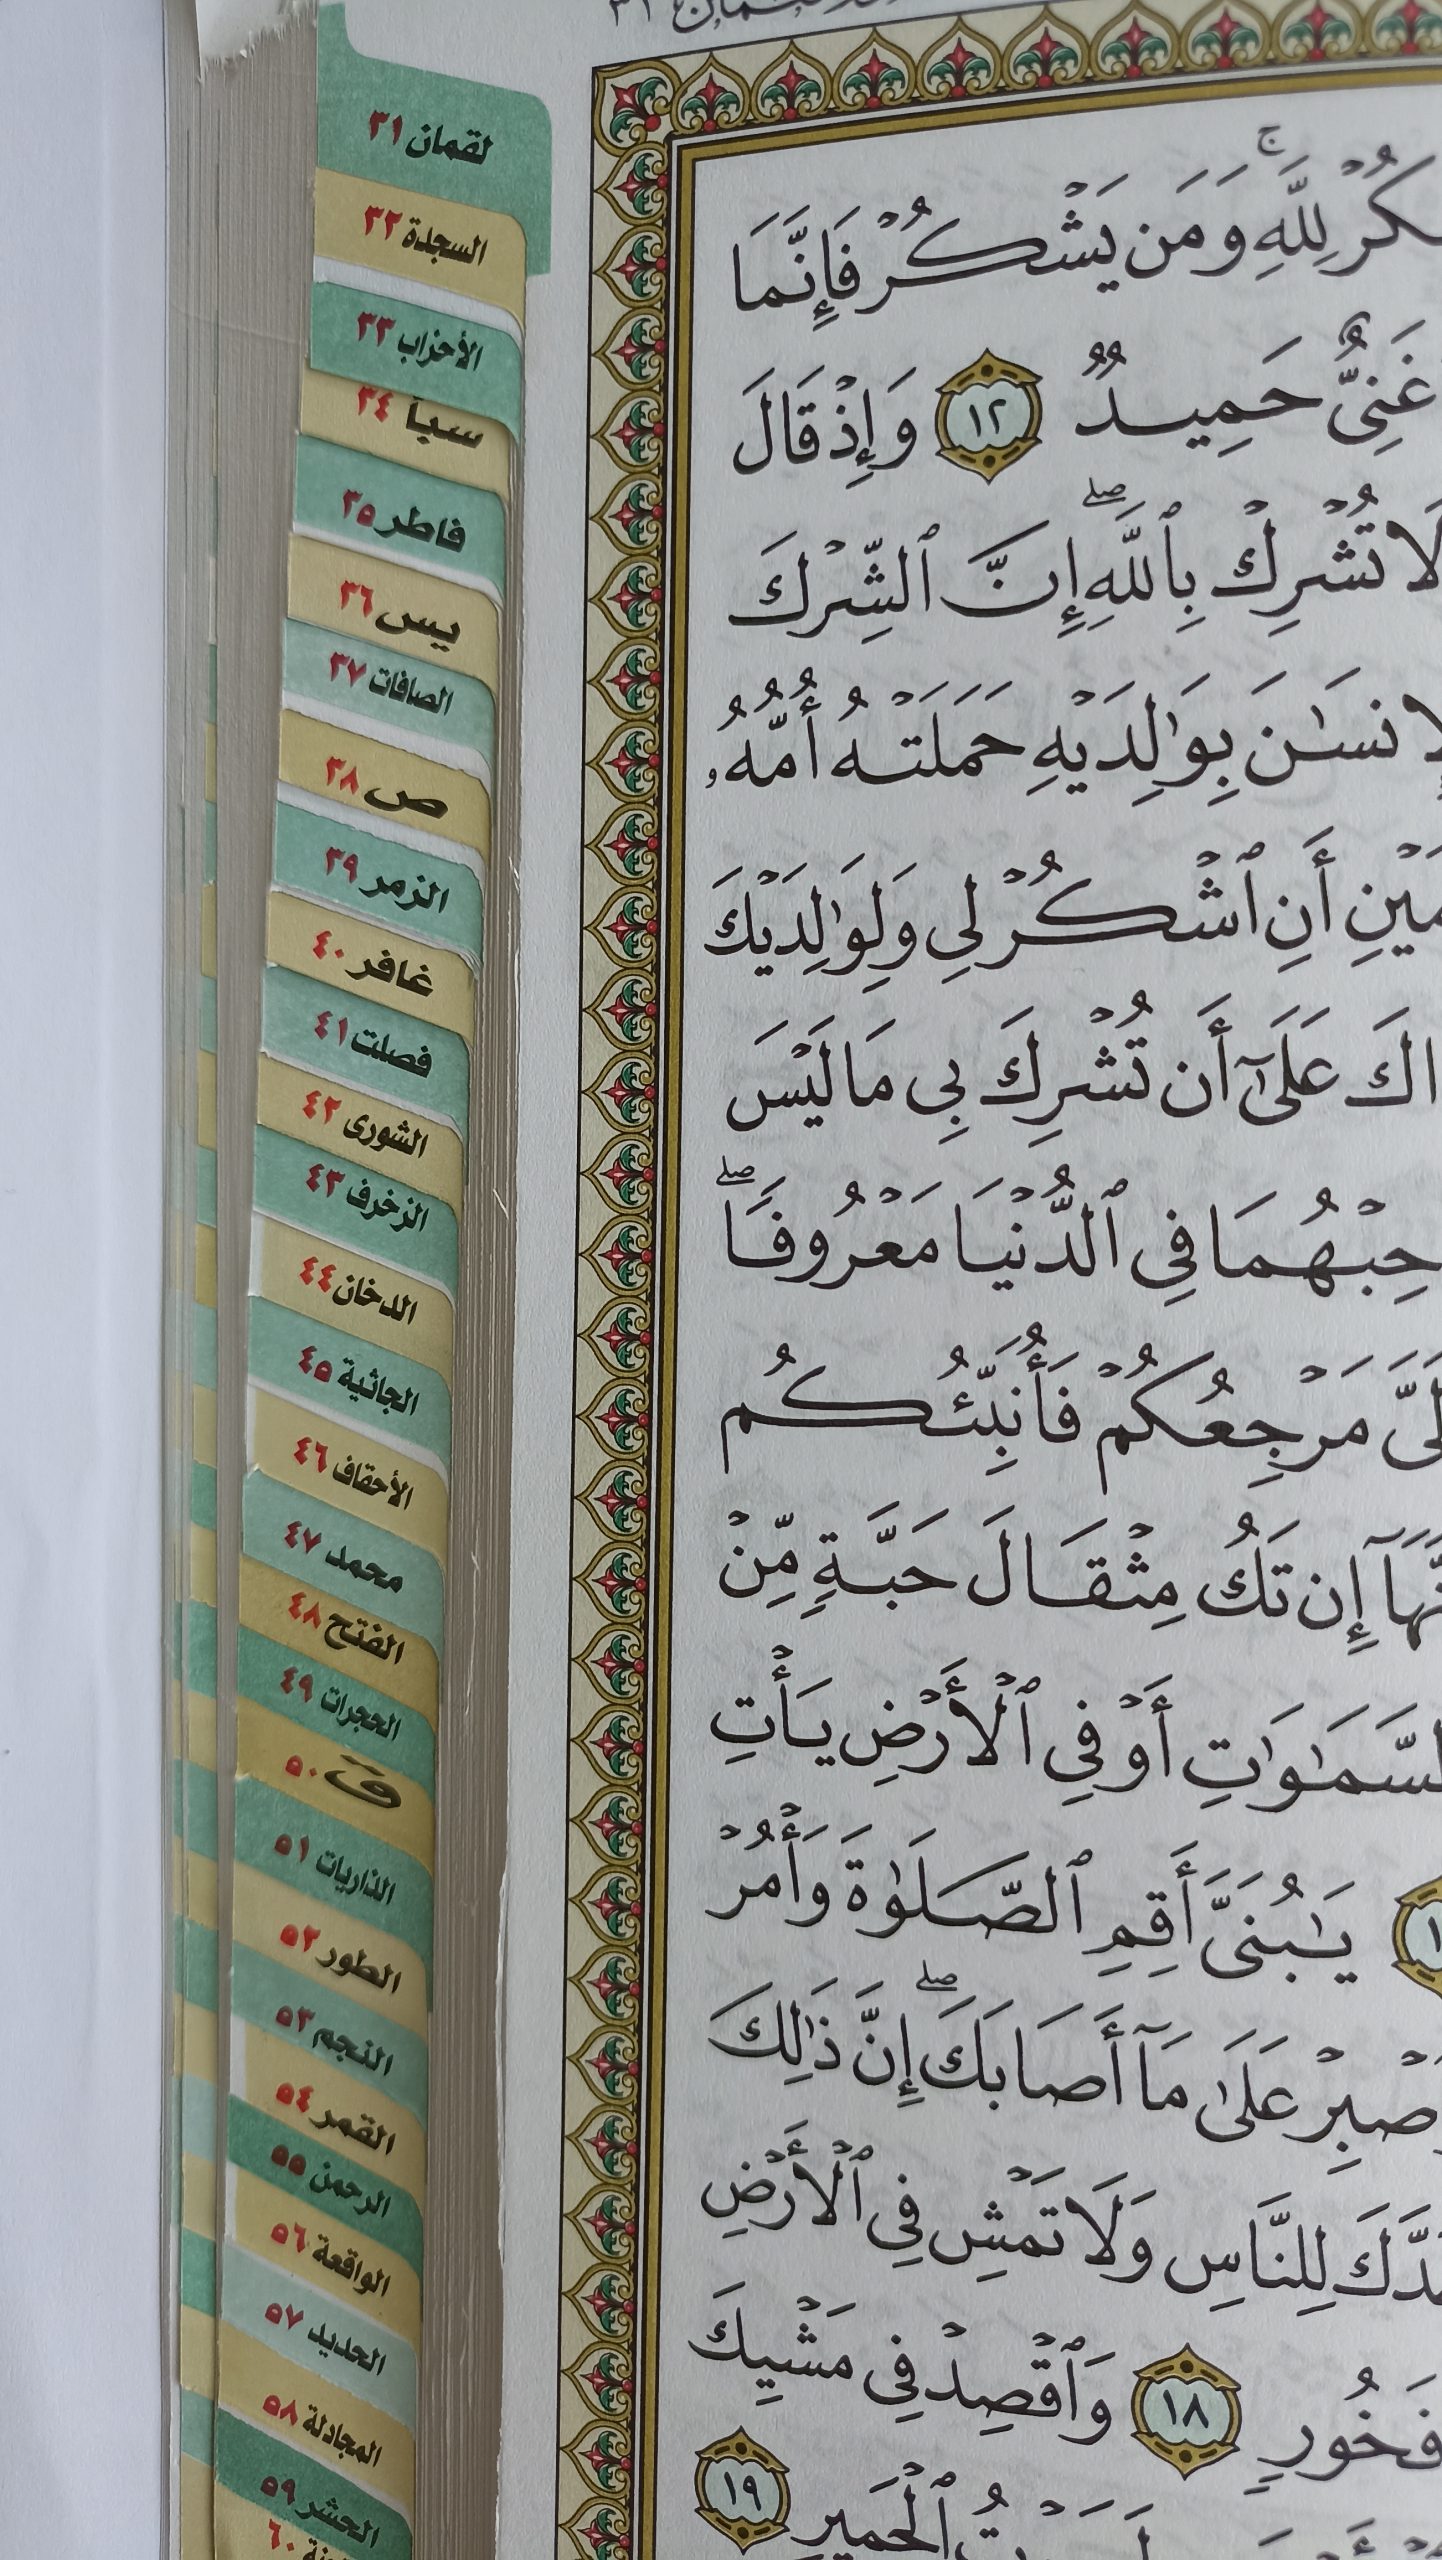 لقمان ٣١
السجدة ٣٢
الأحزاب ٣٣
سبأ ٣٤
فاطر ٣٥
يس ٣٦
الصافات ٣٧
ص ٣٨
الزمر ٣٩
غافر ٤٠
فصلت ٤١
الشورى ٤٢
الزخرف ٤٣
الدخان ٤٤
الجاثية ٤٥
الأحقاف ٤٦
محمد ٤٧
الفتح ٤٨
الحجرات ٤٩
قۤ ٥٠
الذاريات ٥١
الطور ٥٢
النجم ٥٣
القمر ٥٤
الرحمن ٥٥
الواقعة ٥٦
الحديد ٥٧
المجادلة ٥٨
الحشر ٥٩
٦٠
لِلَّهِۚ وَمَن يَشْكُرْ فَإِنَّمَا
غَنِىٌّ حَمِيدٌ ١٢ وَإِذْ قَالَ
لَا تُشْرِكْ بِٱللَّهِۖ إِنَّ ٱلشِّرْكَ
بِوَٰلِدَيْهِ حَمَلَتْهُ أُمُّهُۥ
أَنِ ٱشْكُرْ لِى وَلِوَٰلِدَيْكَ
عَلَىٰٓ أَن تُشْرِكَ بِى مَا لَيْسَ
فِى ٱلدُّنْيَا مَعْرُوفًاۖ
مَرْجِعُكُمْ فَأُنَبِّئُكُم
إِن تَكُ مِثْقَالَ حَبَّةٍ مِّنْ
ٱلسَّمَٰوَٰتِ أَوْ فِى ٱلْأَرْضِ يَأْتِ
يَٰبُنَىَّ أَقِمِ ٱلصَّلَوٰةَ وَأْمُرْ
عَلَىٰ مَآ أَصَابَكَۖ إِنَّ ذَٰلِكَ
لِلنَّاسِ وَلَا تَمْشِ فِى ٱلْأَرْضِ
فَخُورٍ ١٨ وَٱقْصِدْ فِى مَشْيِكَ
ٱلْحَمِيرِ ١٩